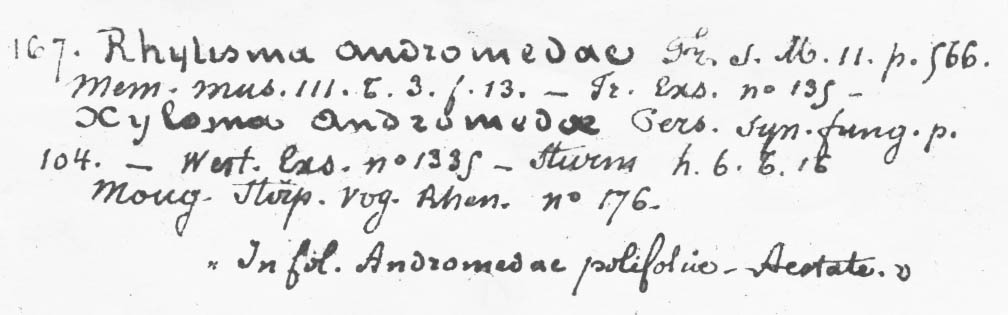 167. Rhytisma andromedae Fr. S. M. 11. p. 566.
Mem. mus. 111. t. 3. f. 13. — Fr. Exs. no 135 —
Xyloma Andromedae Pers. Syn. fung. p.
104. — West. Exs. no 1335 — Sturm h. 6. t. 16
Moug. Stirp. Vog. Rhen. no 176.
" In fol. Andromedae polifoliae — Aestate. "